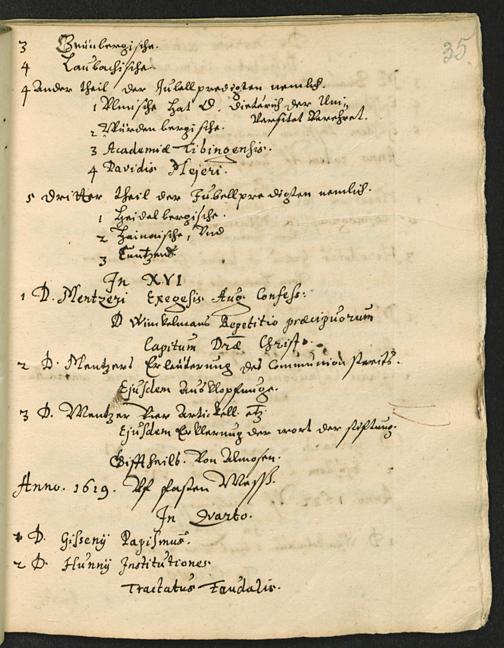 35.
3 Grünbergische.
4 Laubachische.
4 Ander theil der Jubellpredigten nemlich.
1 Ulmische hat D. Dieterich der Uni-
versitet verehret.
2 Würdenbergische.
3 Academiæ Tibingensis.
4 Davidis Mejeri.
5 Dritter theil der Jubellpredigten nemlich.
1 Heidelbergische.
2 Hainoische, Und
3
In XVI
1 D. Mentzeri Exegesis Aug. Confess:
D Winckelmans Repetitio præcipuorum
Capitum Dræ Christ.
2 D. Mentzers Erleüterung des Communion streits.
Ejusdem Ausklopfunge.
3 D. Mentzer Vier Artickell etz
Ejusdem Erklerung der wort der stifftung.
von Almosen.
Anno. 1619. Vf fasten Mess.
In Quarto.
1 D. Gissenij Papismus.
2 D. Hunnij Institutiones
Tractatus Feudalis.